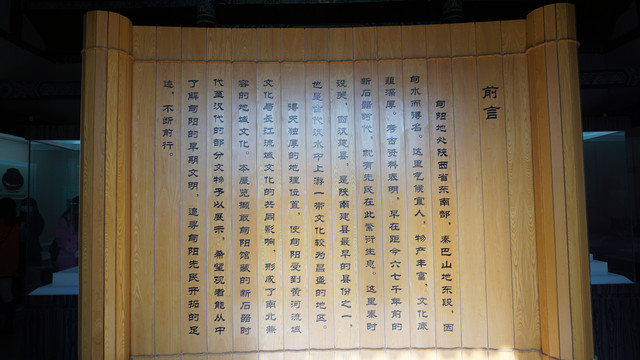 前言
旬阳地处陕西省东南部，秦巴山地东段，因
旬水而得名。这里气候宜人，物产丰富，文化底
蕴深厚。考古资料表明，早在距今六七千年前的
新石器时代，就有先民在此繁衍生息。这里秦时
设关，西汉建县，是陕南建县最早的县份之一，
也是古代汉水中上游一带文化较为昌盛的地区。
得天独厚的地理位置，使旬阳受到黄河流域
文化与长江流域文化的共同影响，形成了南北兼
容的地域文化。本展览撷取旬阳馆藏的新石器时
代至汉代的部分文物予以展示，希望观者能从中
了解旬阳的早期文明，追寻旬阳先民开拓的足
迹，不断前行。